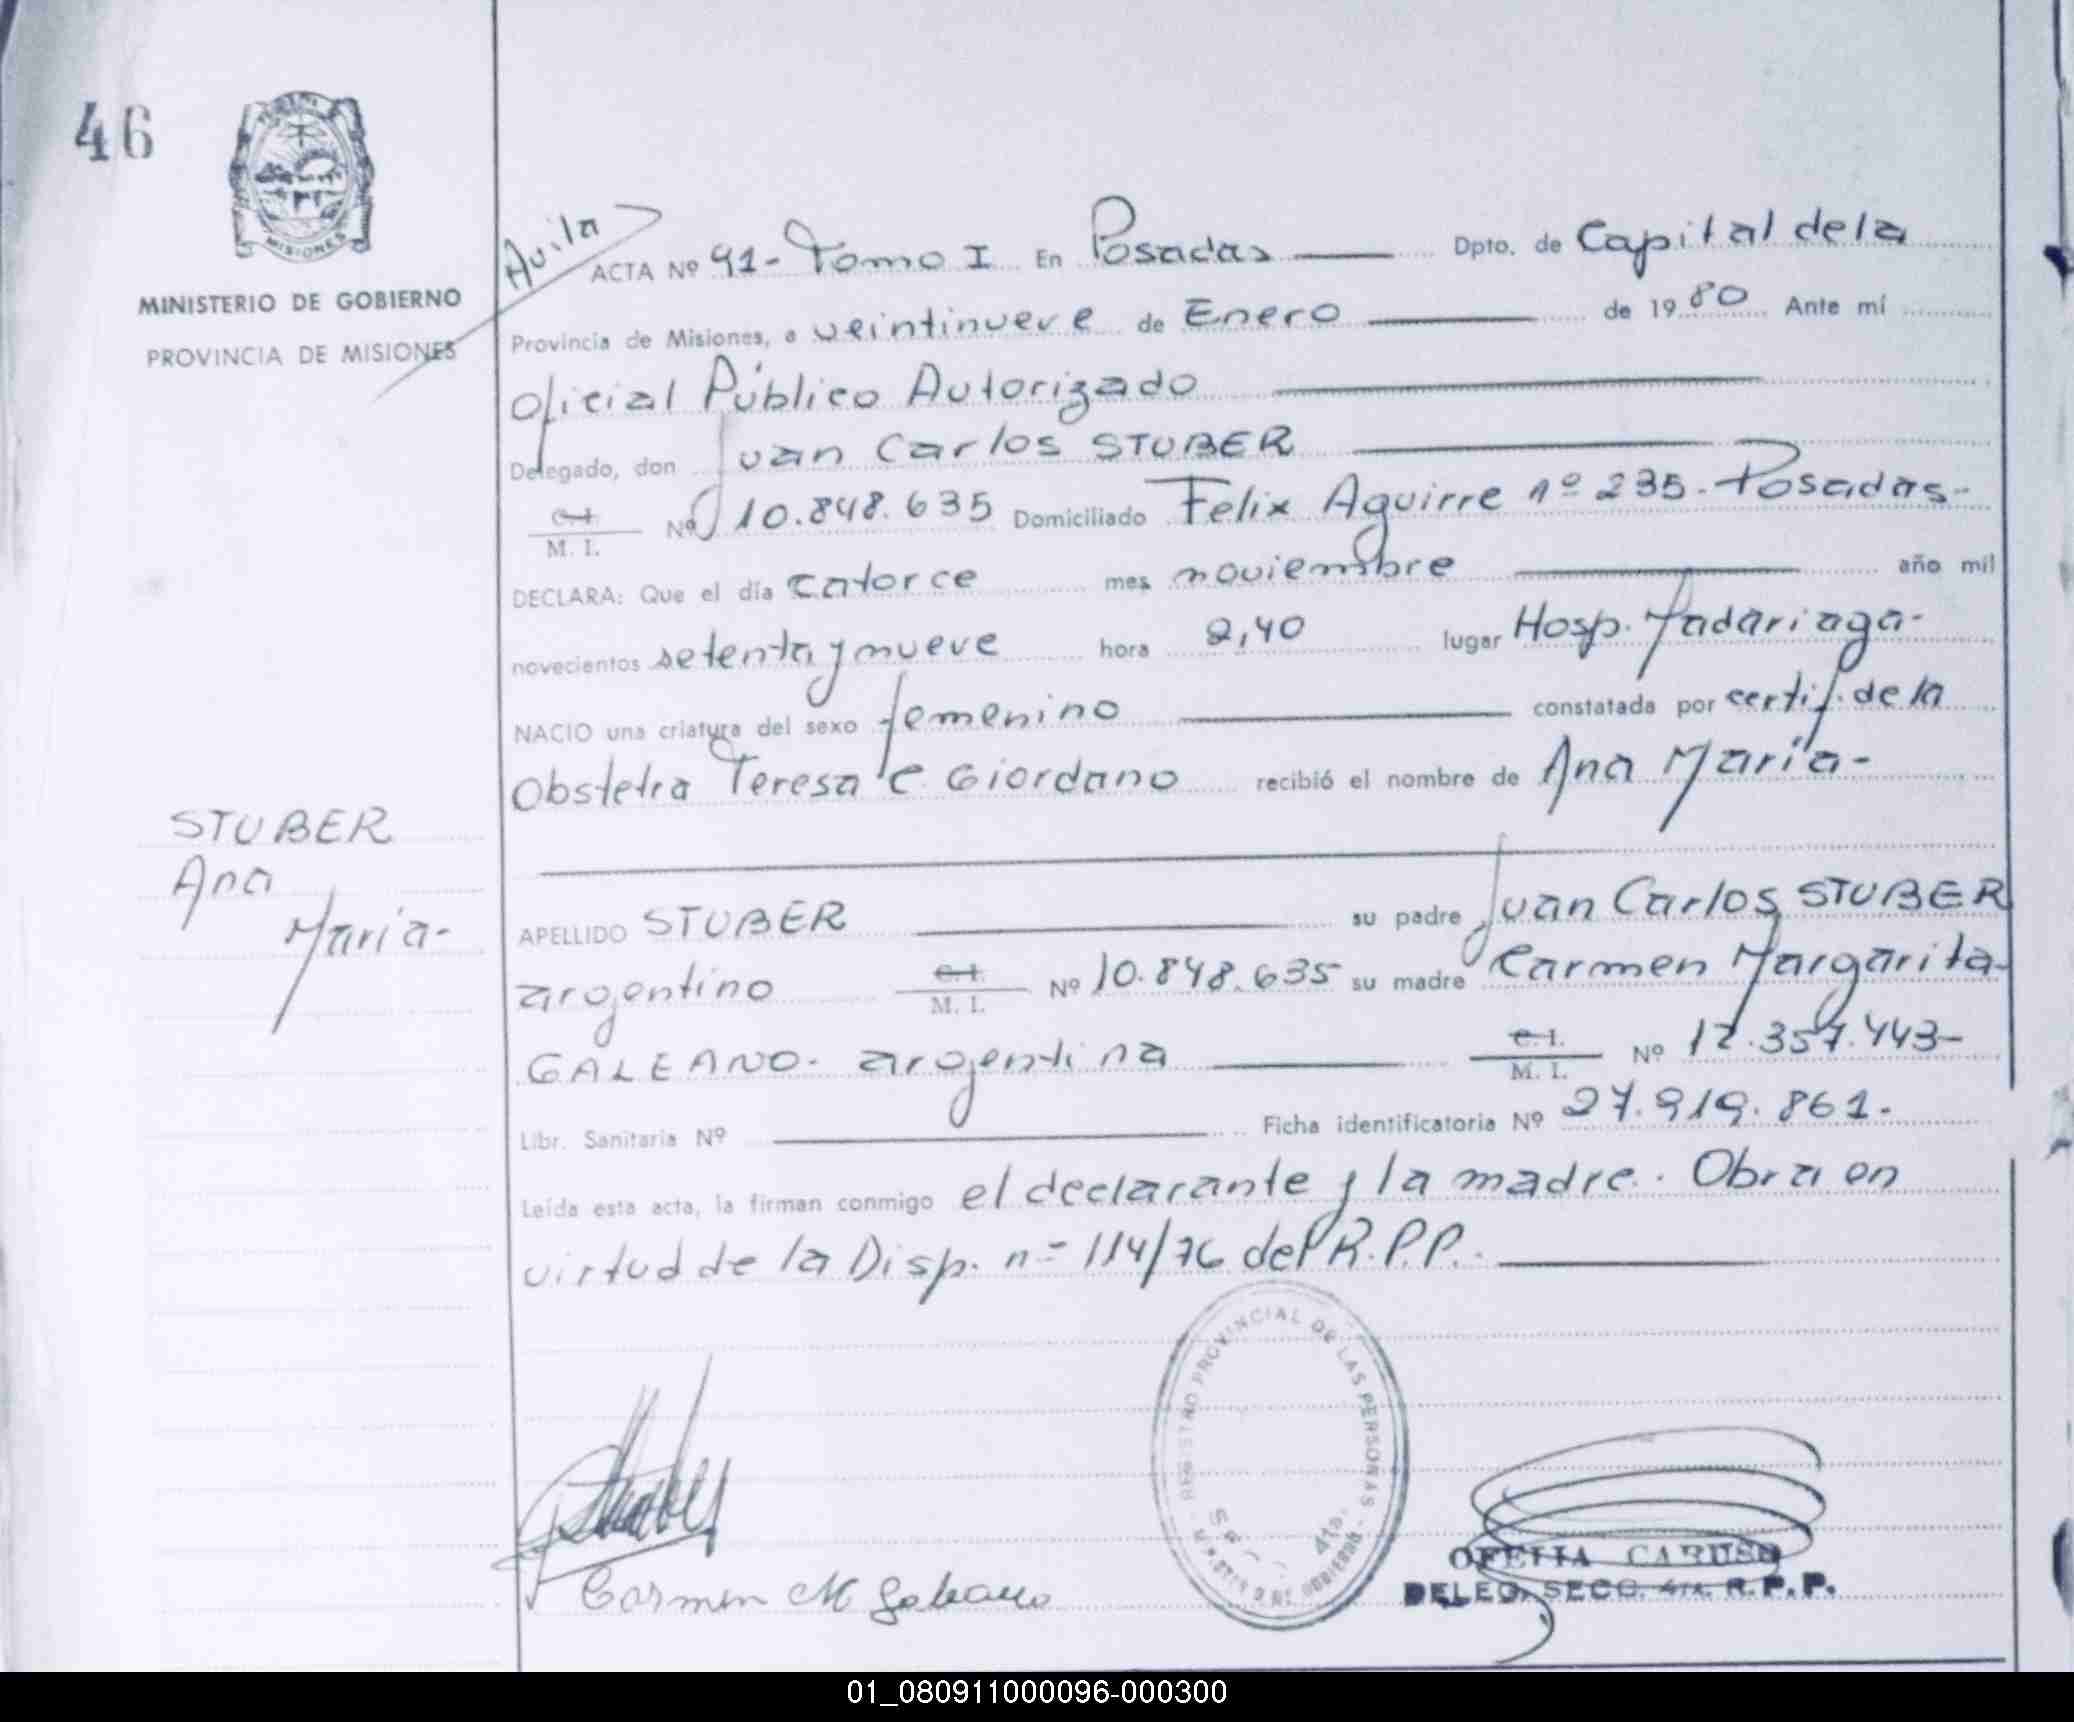 46
MISIONES
MINISTERIO DE GOBIERNO
PROVINCIA DE MISIONES
STUBER
Ana
Maria-
Avila
ACTA Nº 91- Tomo I En Posadas Dpto. de Capital de la
Provincia de Misiones, a veintinueve de Enero de 1980 Ante mí
Oficial Público Autorizado
Delegado, don Juan Carlos STUBER
C.I. M. I. Nº 10.848.635 Domiciliado Felix Aguirre nº 235. Posadas-
DECLARA: Que el día catorce mes noviembre año mil
novecientos setenta y nueve hora 2,40 lugar Hosp. Madariaga-
NACIO una criatura del sexo femenino constatada por certif. de la
Obstetra Teresa C. Giordano recibió el nombre de Ana Maria-
APELLIDO STUBER su padre Juan Carlos STUBER
argentino C.I. M. I. Nº 10.848.635 su madre Carmen Margarita
GALEANO- argentina C.I. M. I. Nº 12.357.443-
Libr. Sanitaria Nº Ficha identificatoria Nº 27.919.861.
Leída esta acta, la firman conmigo el declarante y la madre. Obra en
virtud de la Disp. nº 114/76 del R.P.P.
REGISTRO PROVINCIAL DE LAS PERSONAS
4ta.
Carmen M Galeano
OFELIA CARUSO
DELEG. SECC. 4ta. R.P.P.
01_080911000096-000300